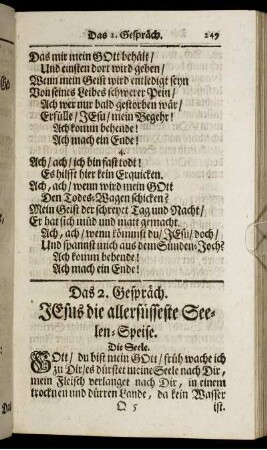 Das 1. Gespräch. 249
Das mir mein GOtt behält/
Und einsten dort wird geben/
Wenn mein Geist wird entledigt seyn
Von seines Leibes schwerer Pein/
Ach wer nur bald gestorben wär/
Erfülle/ JEsu/ mein Begehr!
Ach komm behende!
Ach mach ein Ende!
4.
Ach/ ach/ ich bin fast todt!
Es hilfft hier kein Erquicken.
Ach, ach/ wenn wird mein GOtt
Den Todes-Wagen schicken?
Mein Geist der schreyet Tag und Nacht/
Er hat sich müd und matt gemacht.
Ach, ach/ wenn kömmst du/ JEsu/ doch/
Und spannst mich aus dem Sünden-Joch?
Ach komm behende!
Ach mach ein Ende!
Das 2. Gespräch.
JEsus die allersüsseste See-
len-Speise.
Die Seele.
GOtt/ du bist mein GOtt/ früh wache ich
zu Dir/ es dürstet meine Seele nach Dir,
mein Fleisch verlanget nach Dir, in einem
trocknen und dürren Lande, da kein Wasser
Q 5 ist.